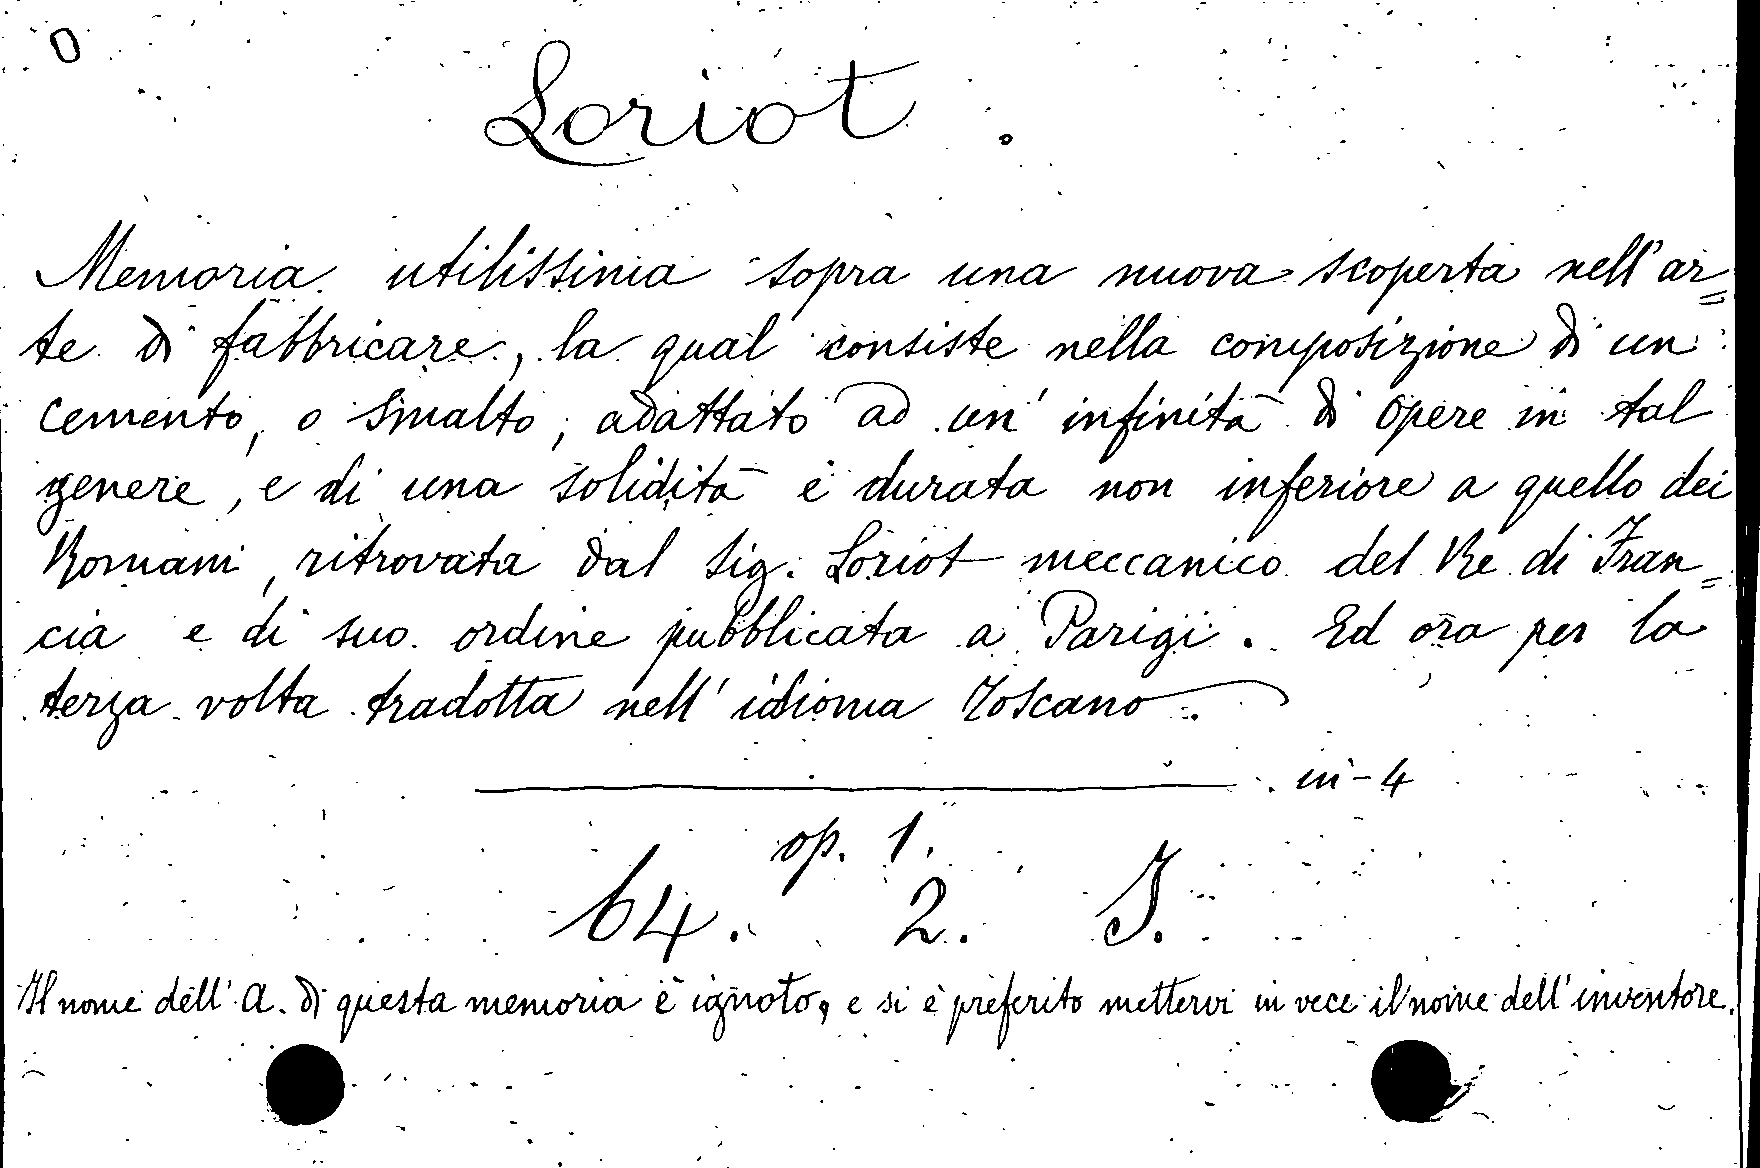 0
Loriot.
Memoria utilissima sopra una nuova scoperta nell'ar=
te di fabbricare, la qual consiste nella composizione di un
cemento, o smalto, adattato ad un' infinità di opere in tal
genere, e di una solidità e durata non inferiore a quello dei
Romani, ritrovata dal Sig. Loriot meccanico del Re di Fran=
cia e di suo ordine pubblicata a Parigi. Ed ora per la
terza volta tradotta nell' idioma Toscano.
in-4
op. 1.
64. 2. I.
Il nome dell' A. di questa memoria è ignoto, e si è preferito mettervi in vece il nome dell' inventore.